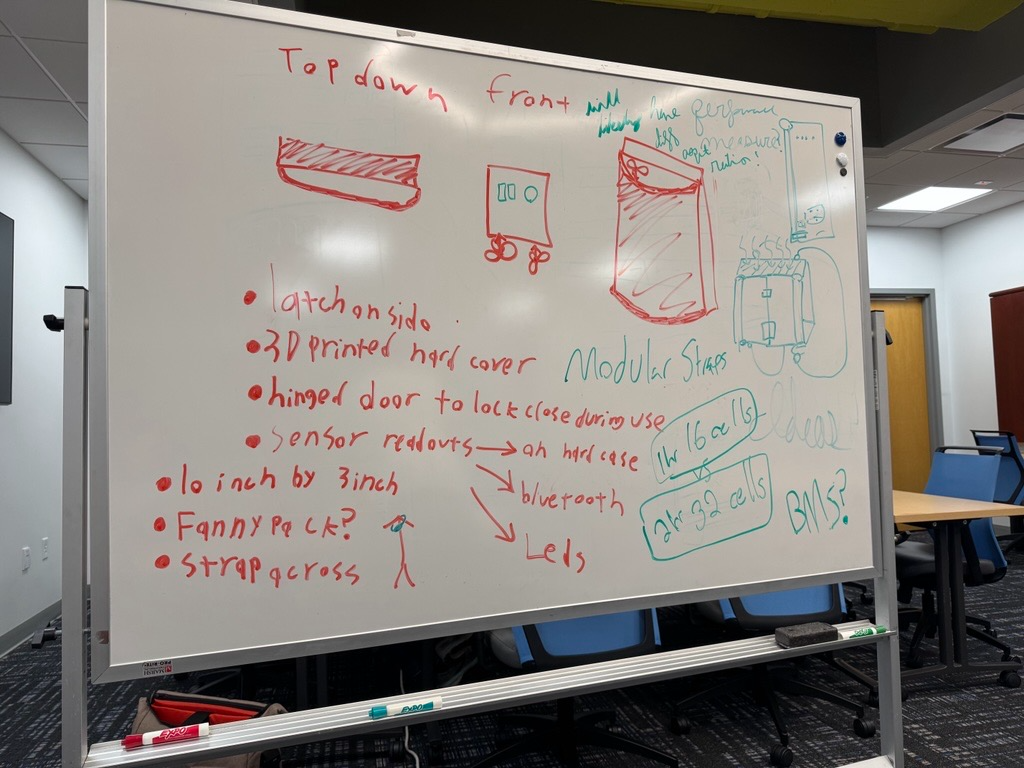 Top down
front
have performance
measured?
ratios!
• latch on side
• 3D printed hard cover
• hinged door to lock close during use
• sensor readouts → on hard case
→ bluetooth
→ Leds
• 10 inch by 3inch
• Fanny pack?
• strap across
Modular Straps
1hr 16 cells
vs
2hr 32 cells
BMS?
EXPO
EXPO
EXPO